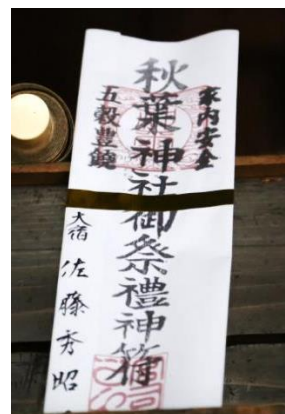 家内安全
秋葉神社御祭禮神符
五穀豊饒
大宿 佐藤秀昭